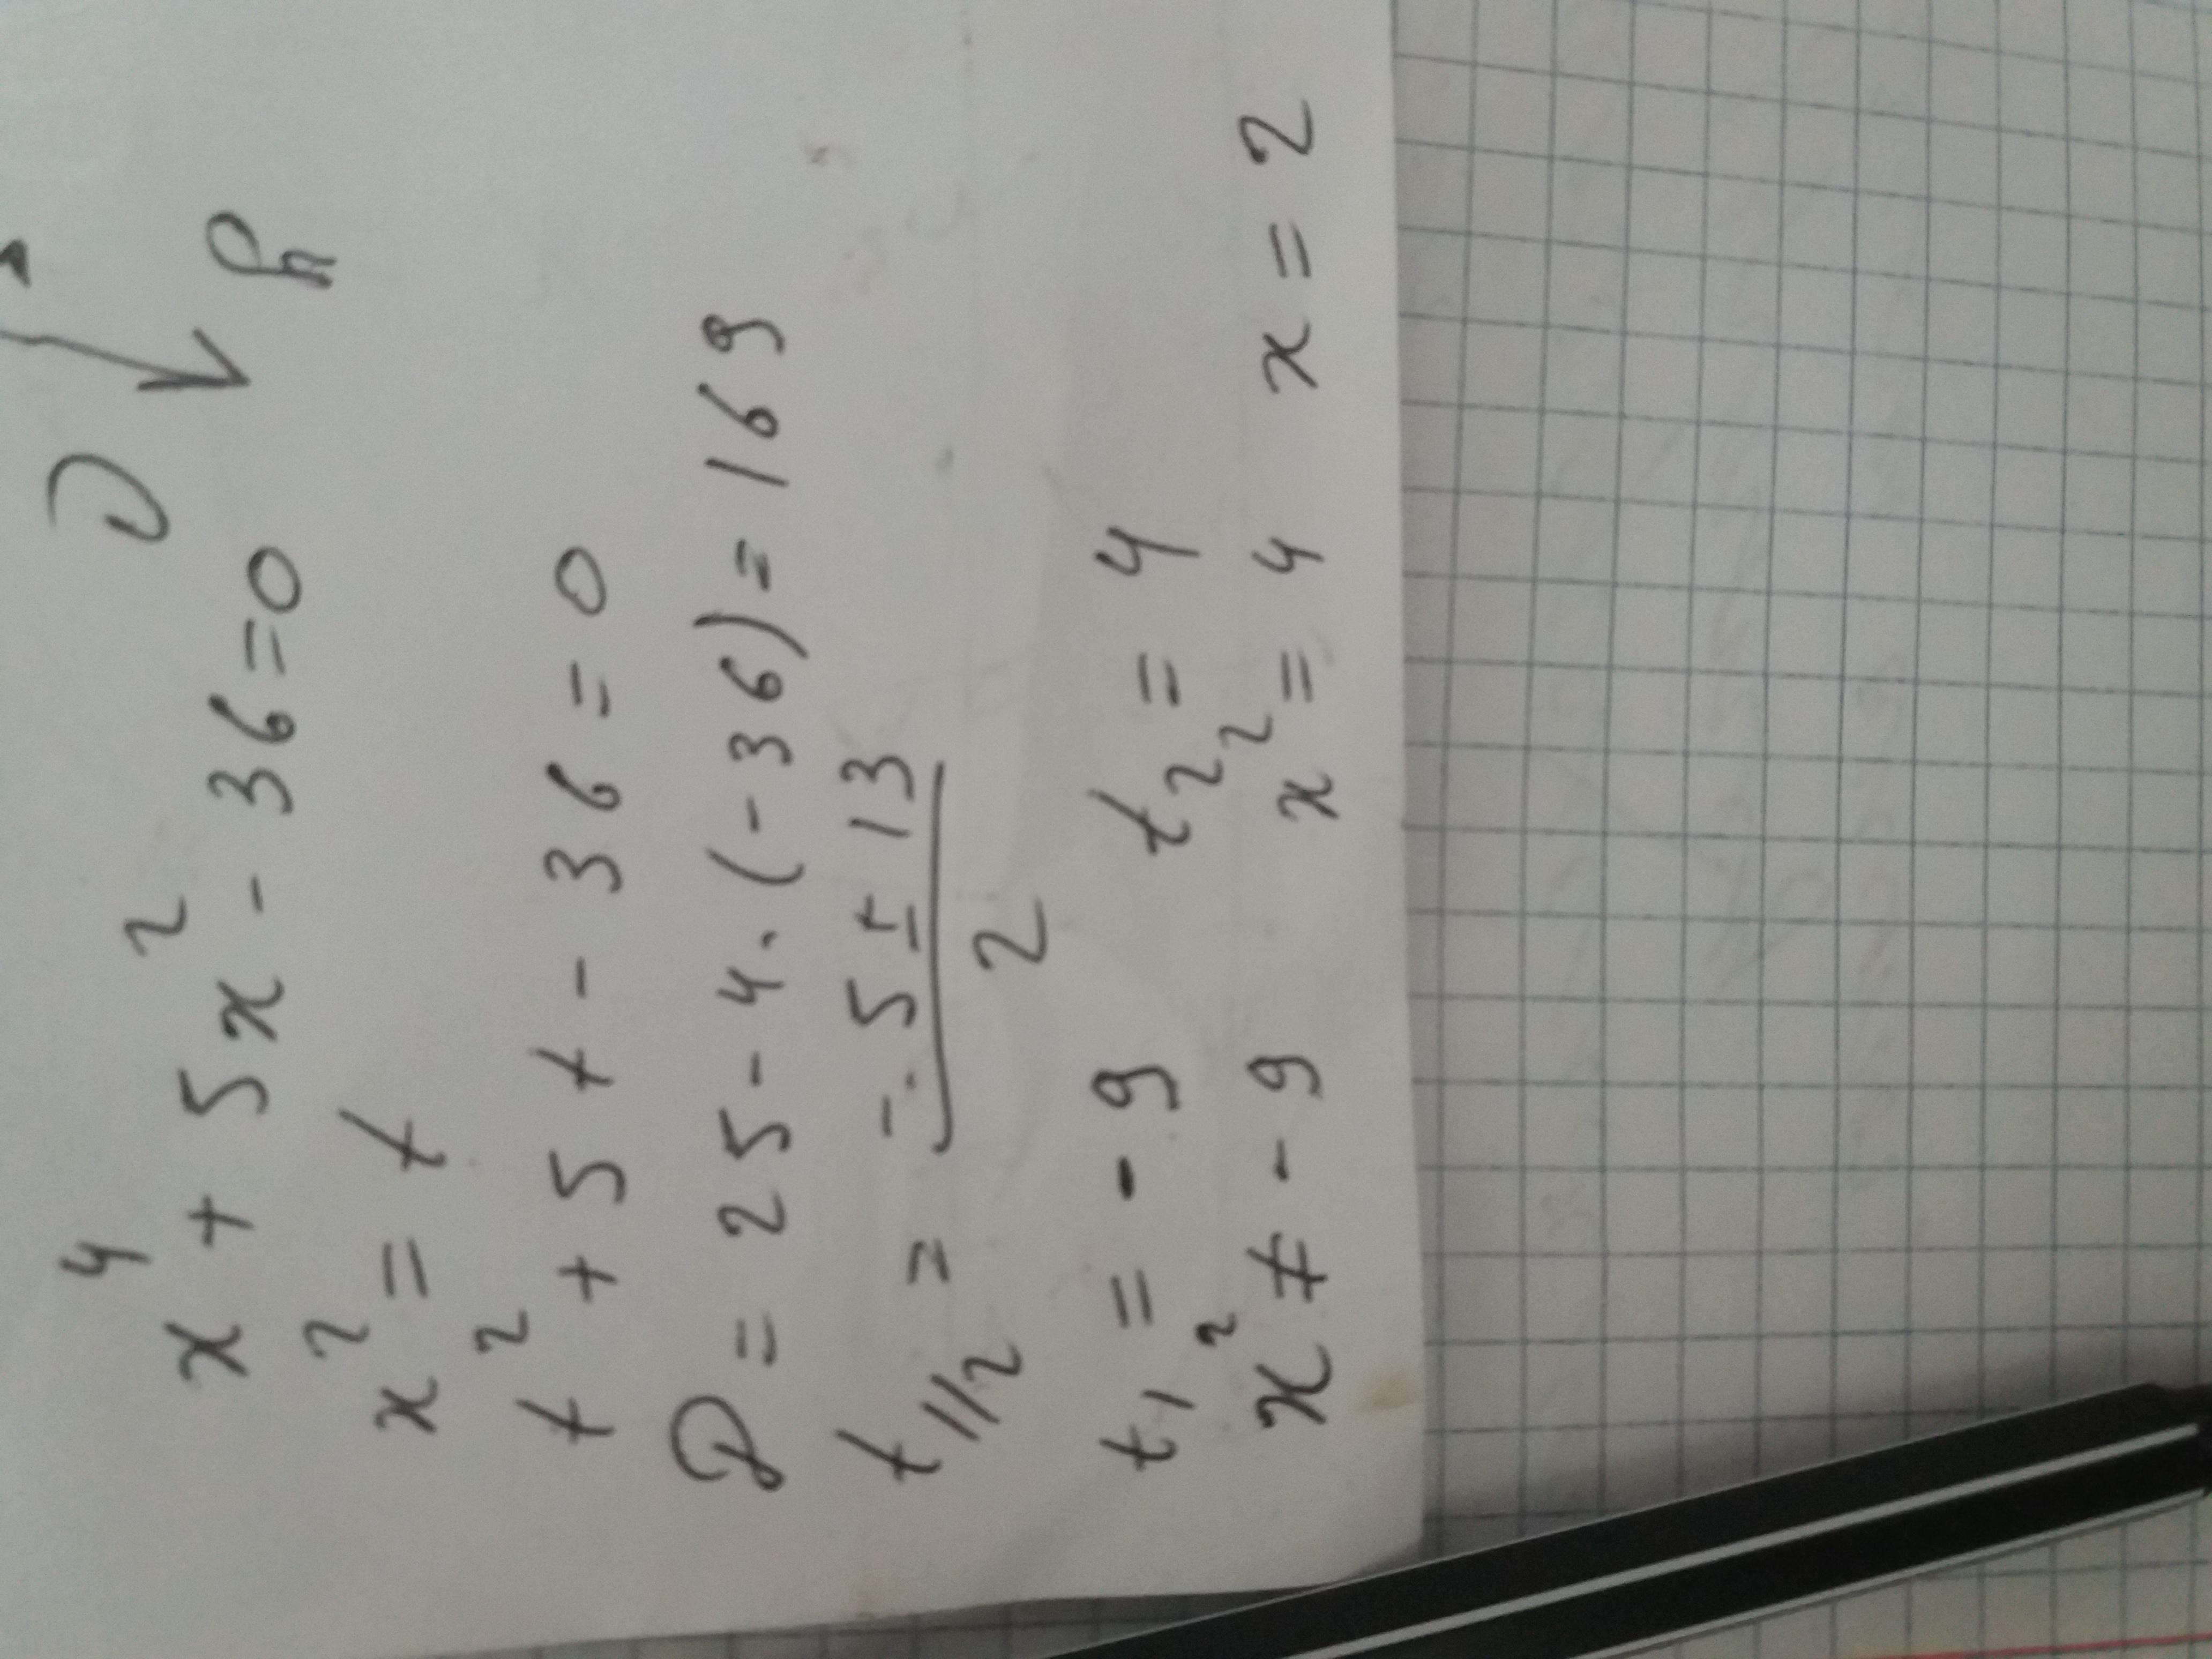 x⁴ + 5x² - 36 = 0
x² = t
t² + 5t - 36 = 0
D = 25 - 4 · (-36) = 169
t₁/₂ = (-5 ± 13)/2
t₁ = -9 t₂ = 4
x² ≠ -9 x² = 4 x = 2